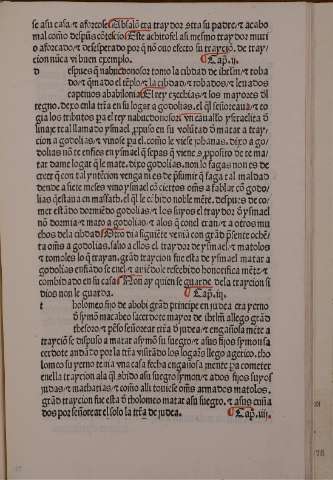 se a su casa ⁊ aforcose El absalō era traydor ɔtra su padre ⁊ acabo
mal como
o aforcado ⁊ desesperado por q̄ nō ouo efecto su trayciō. de tray-
cion nūca vi buen exemplo. Cap. ij.
d
espues q̄ nabucdonosor tomo la cibdad de ihrl̄m ⁊ toba
do ⁊ q̄mado el tēplo ⁊ la cibdad ⁊ robados ⁊ leuados
captiuos a babilonia El rey ezechias ⁊ los mayores dl̄
regno. dexo en la tr̄ra en su logar a godolias. el q̄l señoreaua ⁊ co
gia los tributos pa el rey nabucdonosor vn cauallo ysraelita d̄
linaje real llamado ysmael ppuso en su volūtad d̄ matar a tray-
cion a godolias ⁊ vinose pa el. como le viese johanas. dixo a go-
dolias nō te enfies en ysmael q̄ sepas q̄ viene ɔ pposito de te ma-
tar dame logar q̄ le mate. dixo godolias. non lo fagas non es de
creer q̄ con tal yntēcion venga ni es de p̄sumir q̄ faga tal maldad
dende a siete meses vino ysmael cō ciertos om̄s a fablar cō godo-
lias q̄ estaua en massath. el q̄l le rēcibio noble mēte. despues de co-
mer estādo dormiēdo godolias ⁊ los suyos el traydor d̄ ysmael
nō dormia ⁊ mato a godolias ⁊ alos q̄ con el eran ⁊ a otros mu
chos dela cibdad Otro dia siguiēte veniā con grād p̄sente ochē-
ta om̄s a godolias. salio a ellos el traydor de ysmael ⁊ matolos
⁊ tomoles lo q̄ trayan. grād traycion fue esta de ysmael matar a
godolias enfiādo se enel ⁊ auiēdole rescebido honrrifica mēte ⁊
combidado en su casa Non ay quien se guarde dela traycion si
dios non le guarda. Cap. iij.
t
holomeo fijo de abobi grād principe en judea era yerno
d̄ symō macabeo sacerdote mayor de ihrl̄m allego grād
thesoro ⁊ pēso señorear tr̄ra d̄ judea ⁊ engañosa mēte a
trayciō se dispuso a matar a symō su suegro ⁊ a sus fijos symon sa
cerdote andādo por la tr̄ra visitādo los logares llego a gerico. tho
lomeo su yerno tenia vna casa fecha engañosa mente pa cometer
en ella traycion ala q̄l abido a su suegro symon ⁊ a dos fijos suyos
judas ⁊ mathatias ⁊ como alli touiese om̄s armados matolos.
grād traycion fue esta d̄ tholomeo matar a su suegro ⁊ a sus cuña
dos por señorear el solo la tr̄ra de judea. Cap. iiij.